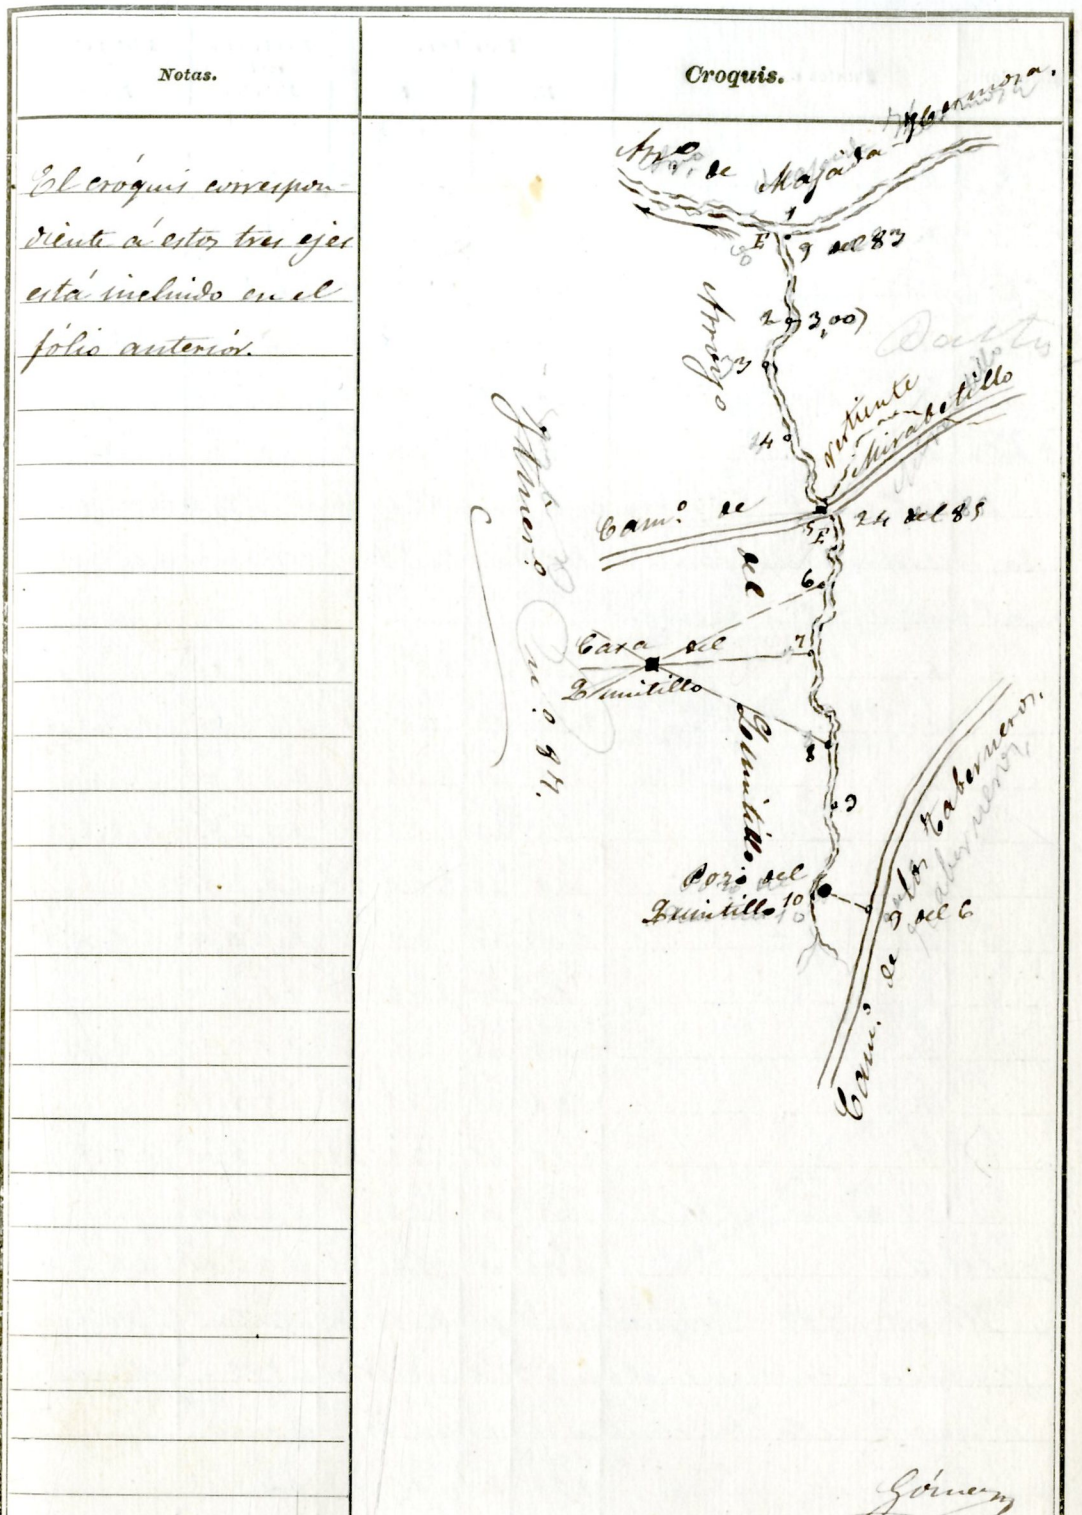 Notas.
Croquis.
El cróquis correspon-
diente á estos tres ejes
está incluido en el
fólio anteriór.
Arº de Majada Hermosa.
1
E 9 del 83
Arroyo
2 3,00
3
4
vertiente
Mirabetillo
Camº de
5 E 24 del 85
del
6
Casa del
Quintillo
7
8
Quintillo
9
Pozo del
Quintillo 10
9 del 6
Camº de los Taberneros.
Itinerº nº 84.
Gómez